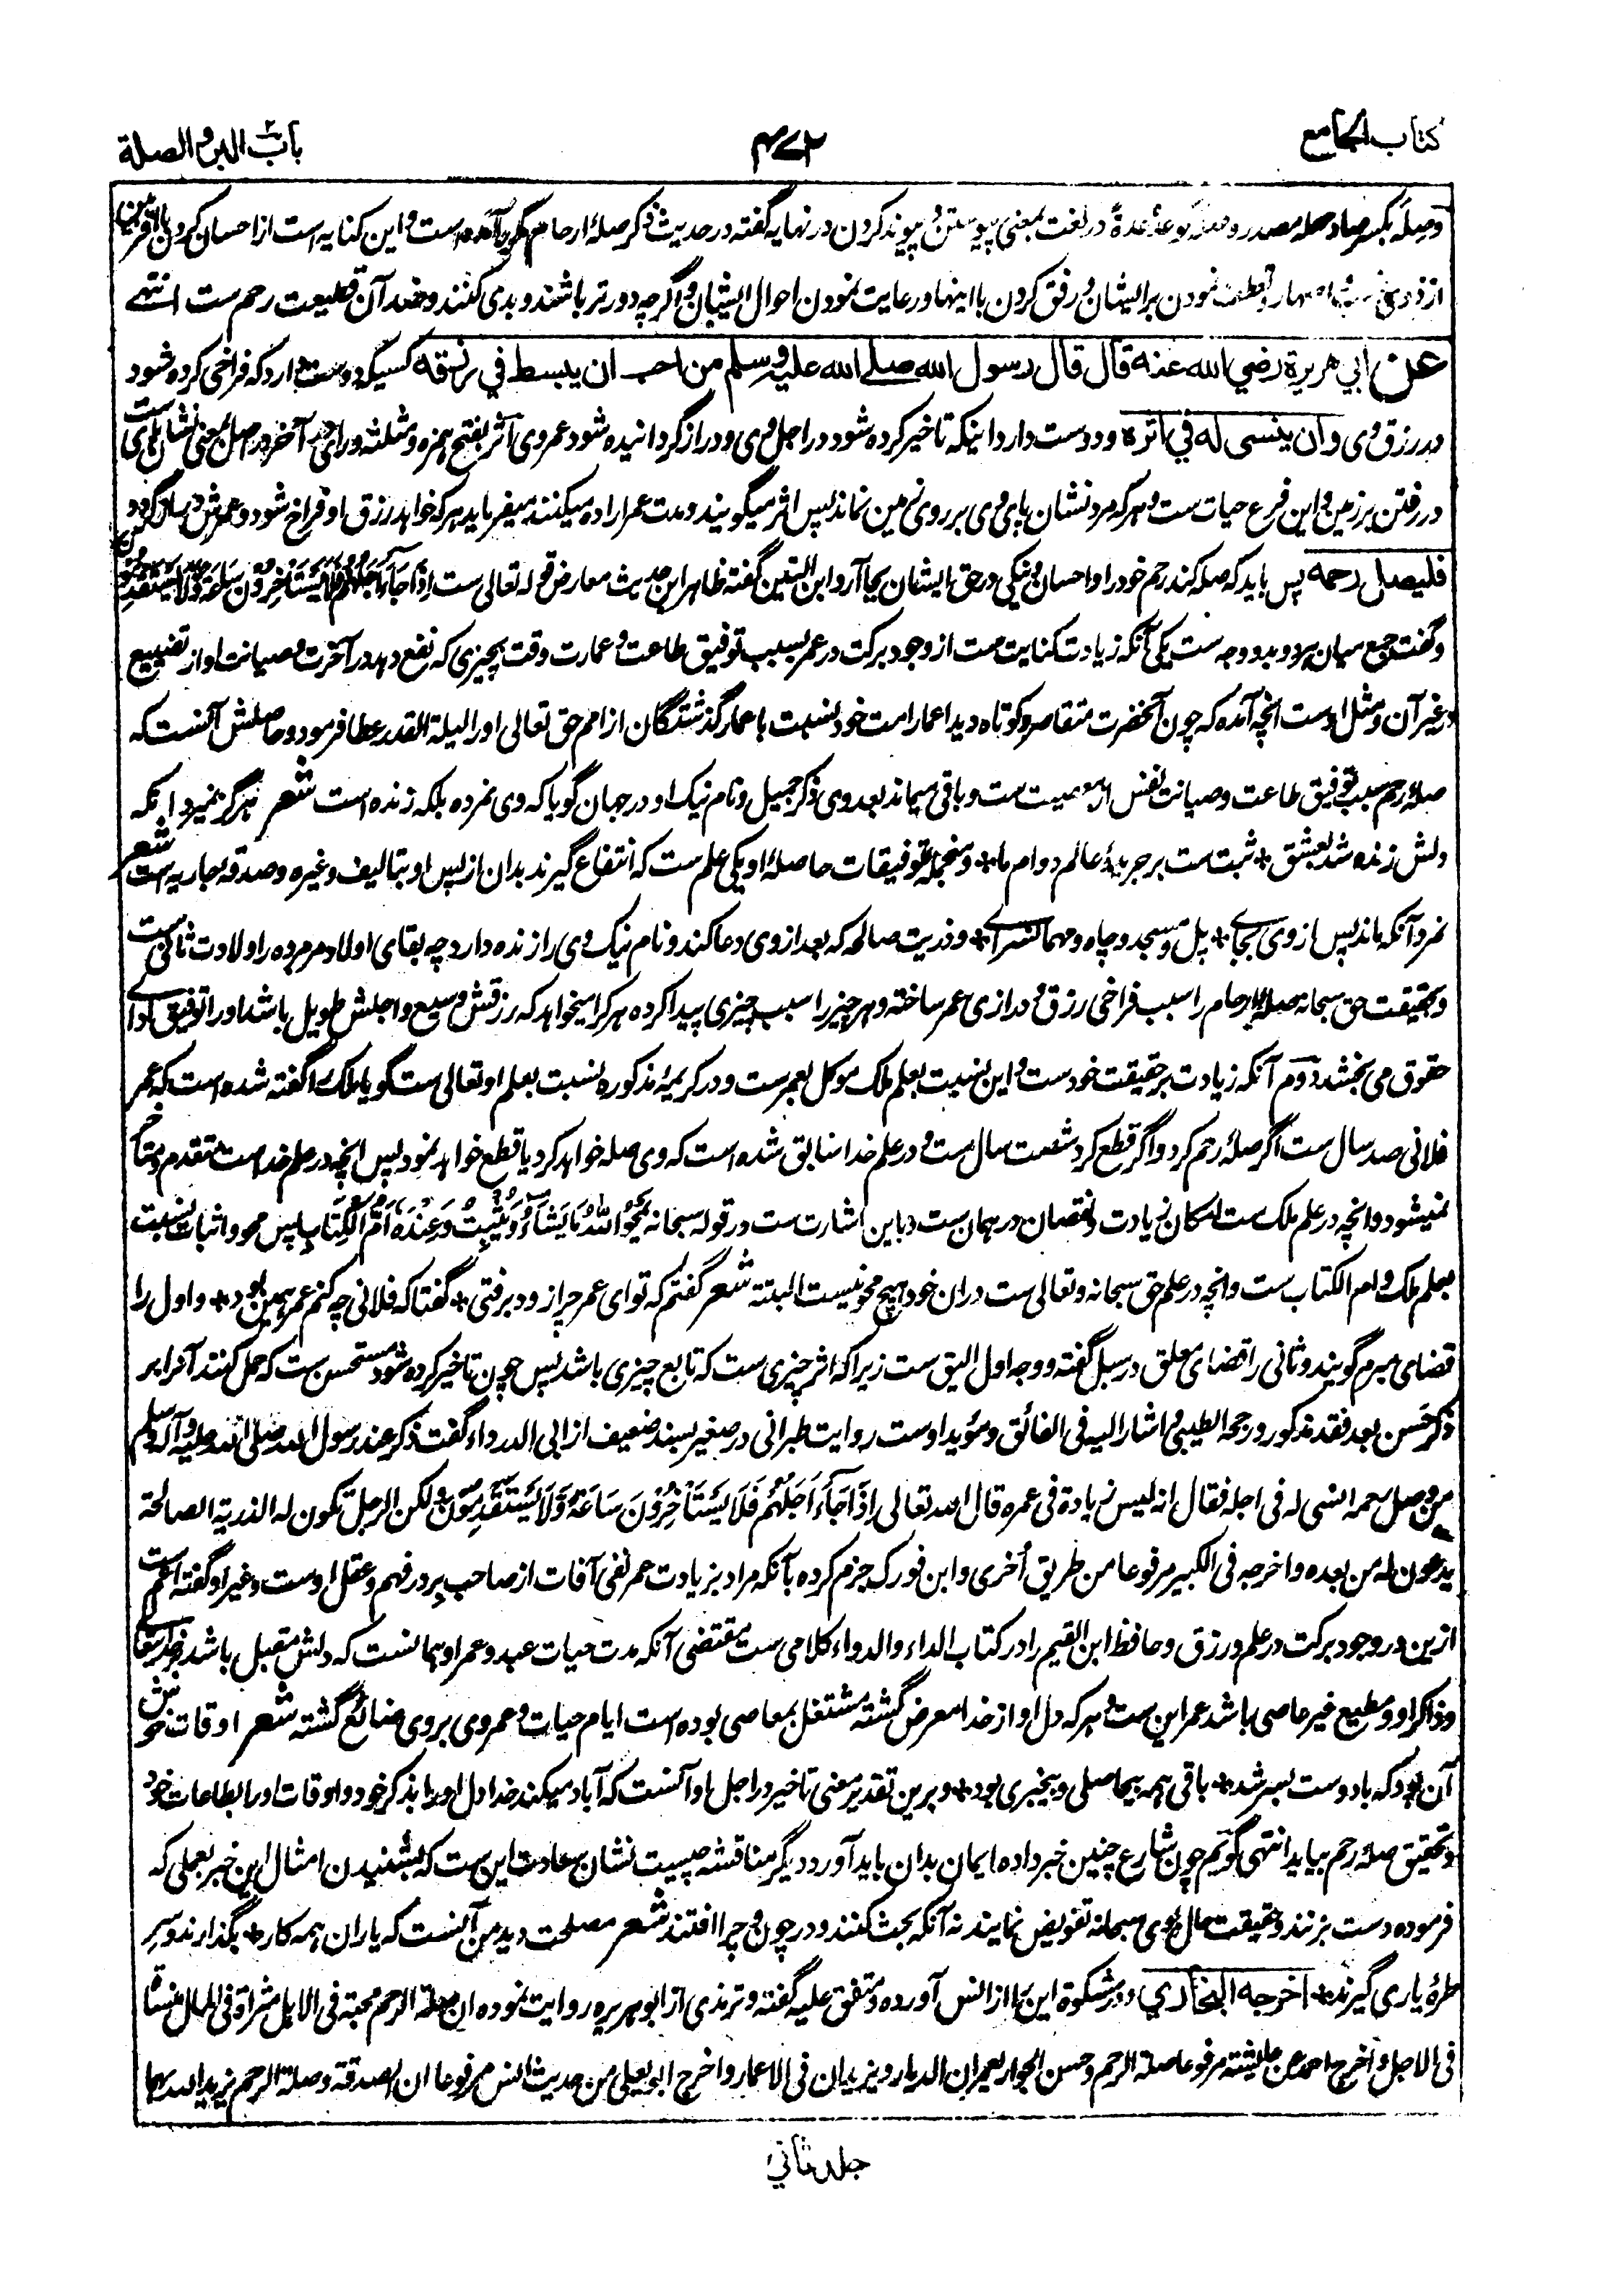 كتاب الجامع
۴۷۲
باب البر والصلة
وصله بكسر صاد مهمله مصدر وصله كوعد عدة در لغت بمعنی پیوستن و پیوند کردن در نهایه گفته در حدیث ذکر صلهٔ ارحام مکرر آمده است و این کنایه است از احسان کردن با اقربین
از ذوی نسب و اصهار و تعطف نمودن بر ایشان و رفق کردن با اینها و رعایت نمودن احوال ایشان و اگرچه دورتر باشند و بدی کنند و ضد آن قطیعت رحم ست انتهے
عن ابي هريرة رضي الله عنه قال قال رسول الله صلى الله عليه وسلم من احب ان يبسط في رزقه کسیکه دوست دارد که فراخی کرده شود
در رزق وی وان ينسى له في اثره و دوست دارد اینکه تاخیر کرده شود در اجل وی و دراز گردانیده شود عمر وی اثر بفتح همزه و مثلثه و رای در آخر در اصل بمعنی نشان پای ست
در رفتن بر زمین و این فرع حیات ست و هر که مرد نشان پای وی بر روی زمین نماند پس اثر میگویند و مدت عمر اراده میکنند میفرماید هر که خواهد رزق او فراخ شود و عمرش دراز گردد
فليصل رحمه پس باید که صله کند رحم خود را و احسان و نیکی در حق ایشان بجا آرد ابن التین گفته ظاهر این حدیث معارض قوله تعالی ست اِذَا جَآءَ اَجَلُهُمْ فَلَا يَسْتَأْخِرُوْنَ سَاعَةً وَّلَا يَسْتَقْدِمُوْنَ
و گفت جمع میان هر دو بدو وجه ست یکی آنکه زیادت کنایت ست از وجود برکت در عمر بسبب توفیق طاعت و عمارت وقت بچیزی که نفع دهد در آخرت و صیانت او از تضییع
در غیر آن و مثل اوست انچه آمده که چون آنحضرت متقاصر و کوتاه دید اعمار امت خود بنسبت باعمار گذشتگان از امم حق تعالی او را لیلة القدر عطا فرمود و حاصلش آنست که
صلهٔ رحم سبب توفیق طاعت و صیانت نفس از معصیت ست و باقی میماند بعد وی ذکر جمیل و نام نیک او در جهان گویا که وی نمرده بلکه زنده است شعر هرگز نمیرد انکه
دلش زنده شد بعشق * ثبت ست بر جریدهٔ عالم دوام ما * و منجمله توفیقات حاصلهٔ او یکی علم ست که انتفاع گیرند بدان از پس او بتالیف و غیره و صدقهٔ جاریه است شعر
نمرد آنکه ماند پس از وی بجای * پل و مسجد و چاه و مهمانسرای * و ذریت صالحه که بعد از وی دعا کند و نام نیک وی را زنده دارد چه بقای اولاد مر مرده را ولادت ثانی ست
و بحقیقت حق سبحانه صلهٔ ارحام را سبب فراخی رزق و درازی عمر ساخته و هر چیز را سبب چیزی پیدا کرده هر کرا میخواهد که رزقش وسیع و اجلش طویل باشد او را توفیق ادای
حقوق می بخشد دوم آنکه زیادت بر حقیقت خودست و این بنسبت بعلم ملک موکل بعمرست و در کریمهٔ مذکوره بنسبت بعلم او تعالی ست گویا ملک را گفته شده است که عمر
فلانی صد سال ست اگر صلهٔ رحم کرد و اگر قطع کرد شصت سال ست و در علم خدا سابق شده است که وی صله خواهد کرد یا قطع خواهد نمود پس انچه در علم خداست متقدم و متأخر
نمیشود و انچه در علم ملک ست امکان زیادت و نقصان در همان ست و باین اشارت ست در قوله سبحانه يَمْحُوا اللّٰهُ مَا يَشَآءُ وَيُثْبِتُ وَعِنْدَهٗ اُمُّ الْكِتَابِ پس محو و اثبات بنسبت
بعلم ملک و ام الکتاب ست و انچه در علم حق سبحانه و تعالی ست دران خود هیچ محو نیست البتة شعر گفتم که تو ای عمر چرا زود برفتی * گفتا که فلانی چه کنم عمر همین بود * و اول را
قضای مبرم گویند و ثانی را قضای معلق در سبل گفته و وجه اول الیق ست زیرا که اثر چیزی ست که تابع چیزی باشد پس چون تاخیر کرده شود مستحسن ست که حمل کنند آنرا بر
ذکر حسن بعد فقد مذکور و رجحه الطیبی و اشار الیه فی الفائق و مؤید اوست روایت طبرانی در صغیر بسند ضعیف از ابی الدرداء گفت ذکر عند رسول الله صلی الله علیه و آله وسلم
من وصل رحمه انسی له فی اجله فقال انه لیس زیادة فی عمره قال الله تعالی اِذَا جَآءَ اَجَلُهُمْ فَلَا يَسْتَأْخِرُوْنَ سَاعَةً وَّلَا يَسْتَقْدِمُوْنَ ولکن الرجل تکون له الذریة الصالحة
یدعون له من بعده و اخرجه فی الکبیر مرفوعا من طریق اُخری و ابن فورک جزم کرده بآنکه مراد بزیادت عمر نفی آفات از صاحب بِر در فهم و عقل اوست و غیر او گفته اعم ست
ازین در وجود برکت در علم و رزق و حافظ ابن القیم را در کتاب الداء والدواء کلامی ست مقتضی آنکه مدت حیات عبد و عمر او همانست که دلش مقبل باشد بر خدا تعالی
و ذاکر او و مطیع غیر عاصی باشد عمر این ست و هر که دل او از خدا معرض گشته مشتغل بمعاصی بوده است ایام حیات و عمر وی بر وی ضائع گشته شعر اوقات خوش
آن بود که با دوست بسر شد * باقی همه بیحاصلی و بیخبری بود * و برین تقدیر معنی تاخیر در اجل او آنست که آباد میکند خدا دل او را بذکر خود و اوقات او را بطاعات خود
و تحقیق صلهٔ رحم بیاید انتهی گویم چون شارع چنین خبر داده ایمان بدان باید آورد دیگر مناقشه چیست نشان سعادت این ست که بشنیدن امثال این خبر بعملی که
فرموده دست بزنند و حقیقت حال بوی سبحانه تفویض نمایند نه آنکه بحث کنند و در چون و چرا افتند شعر مصلحت دید من آنست که یاران همه کار * بگذارند و سرِ
طرهٔ یاری گیرند * اخرجه البخاري و در مشکوة این را از انس آورده و متفق علیه گفته و ترمذی از ابو هریره روایت نموده ان صلة الرحم محبة فی الاهل مثراة فی المال منسأة
فی الاجل و اخرج احمد عن عایشة مرفوعا صلة الرحم وحسن الجوار یعمران الدیار و یزیدان فی الاعمار و اخرج ابو یعلی من حدیث انس مرفوعا ان الصدقة وصلة الرحم یزید الله بهما
جلد ثاني